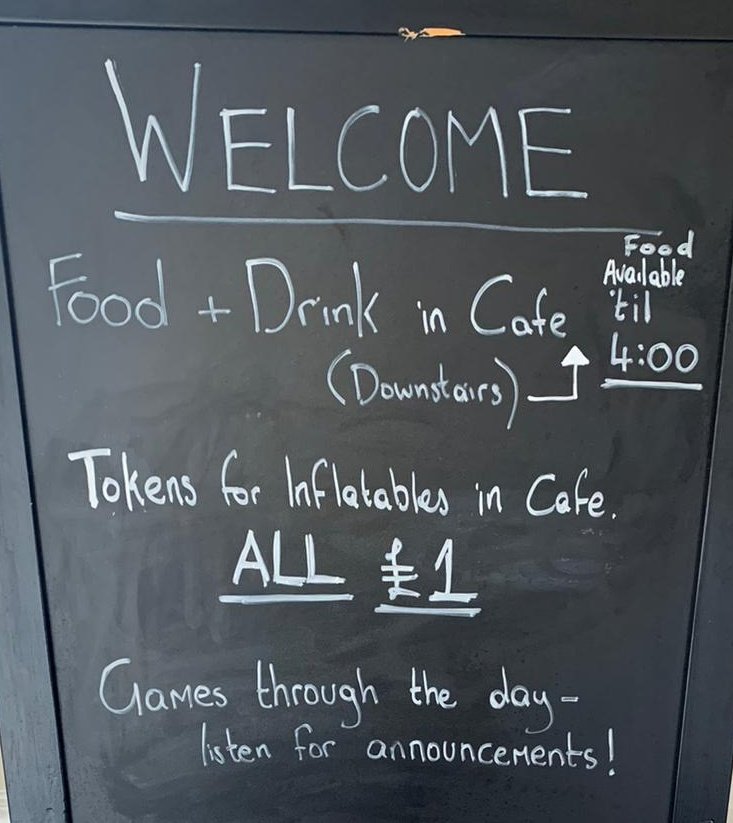 WELCOME
Food + Drink in Cafe
(Downstairs)
Food
Available
'til
4:00
Tokens for Inflatables in Cafe.
ALL £1
Games through the day -
listen for announcements!